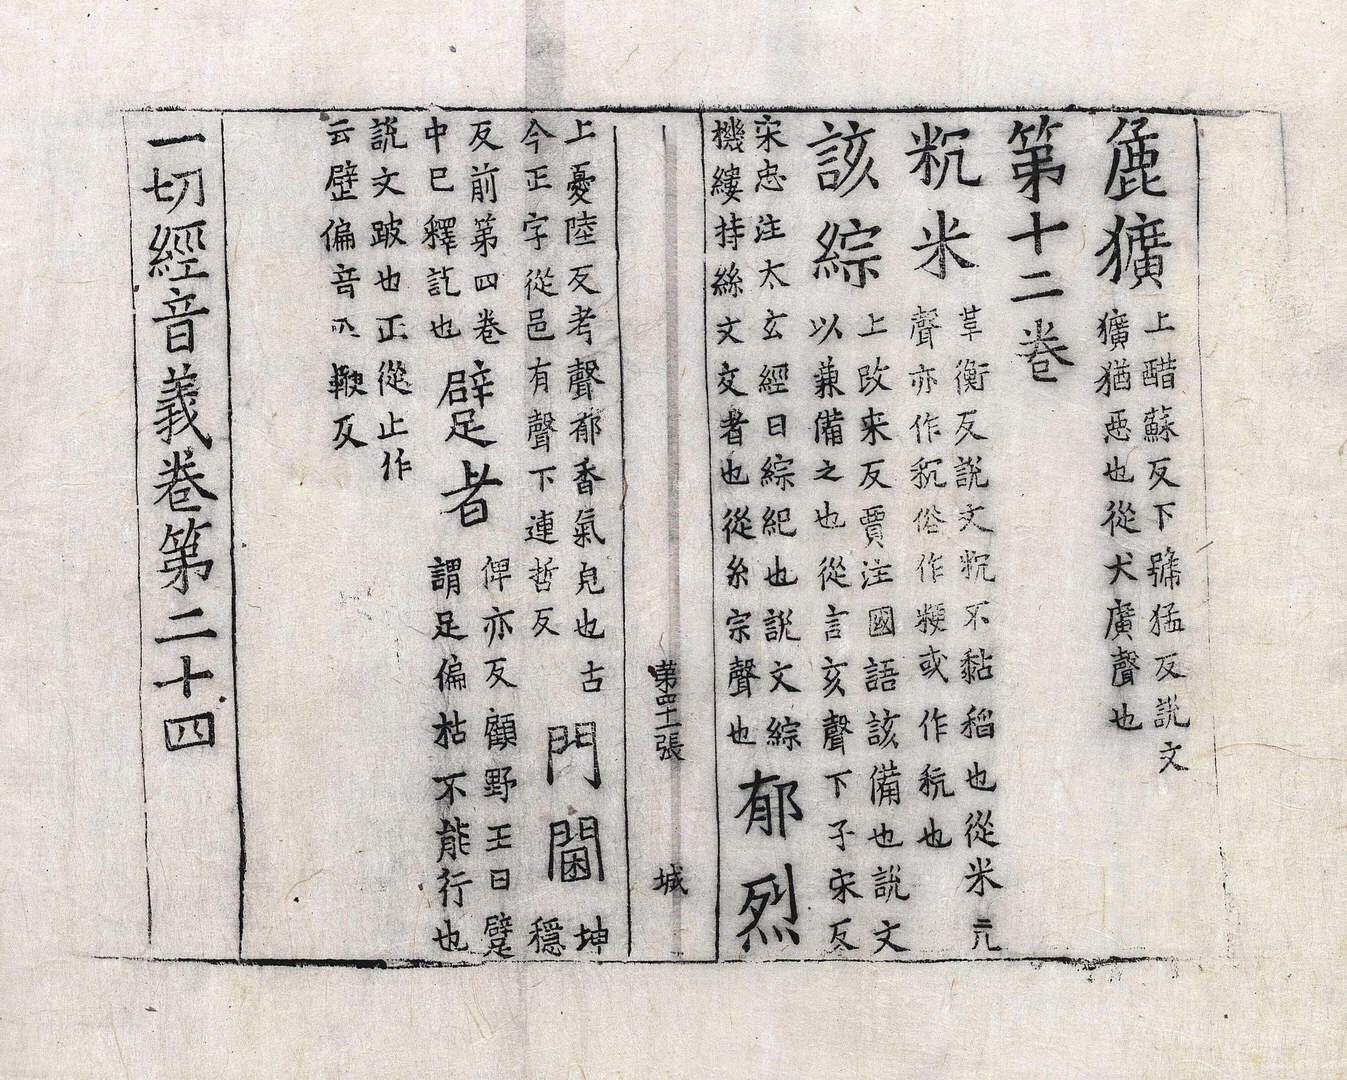 麁獷上醋蘇反下號猛反說文
獷猶恶也從犬廣聲也
第十二卷
粇米䒶衡反說文粇不黏稻也從米亢
聲亦作秔俗作粳或作䄫也
該綜上改来反賈注國語該備也說文
以兼備之也從言亥聲下子宋反
宋忠注太玄經曰綜紀也說文綜
機縷持絲文交者也從糸宗聲也
郁烈
第四十二張 城
上憂陸反考聲郁香氣皃也古
今正字從邑有聲下連哲反
門閫坤
穩
反前第四卷
中已釋訖也
躄者俾亦反顧野王曰躄
謂足偏枯不能行也
說文跛也正從止作
云壁偏音疋鞭反
一切經音義卷第二十四